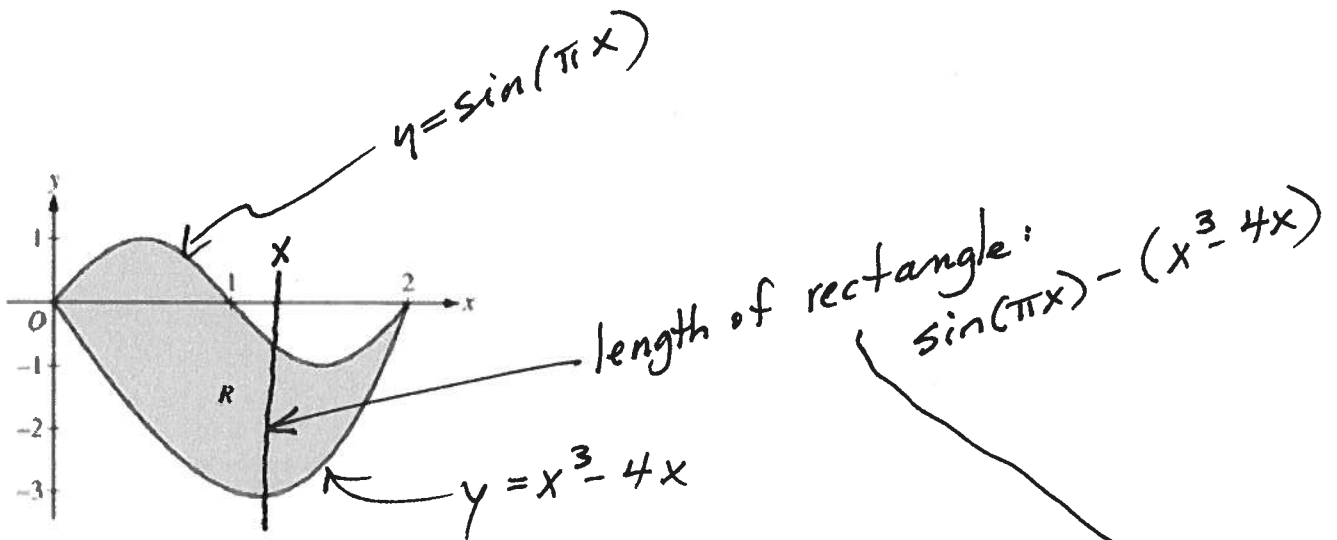 y=sin(πx)
y
1
x
1
2
x
O
length of rectangle:
sin(πx)-(x³-4x)
-1
R
-2
y=x³-4x
-3